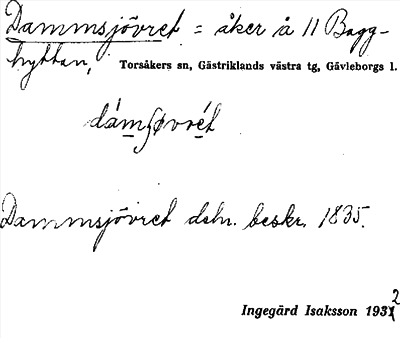 Dammsjövret = åker å 11 Bagg-
hyttan, Torsåkers sn, Gästriklands västra tg, Gävleborgs l.
dámʃøvrét
Dammsjövret dshr. beskr. 1835.
Ingegärd Isaksson 1932